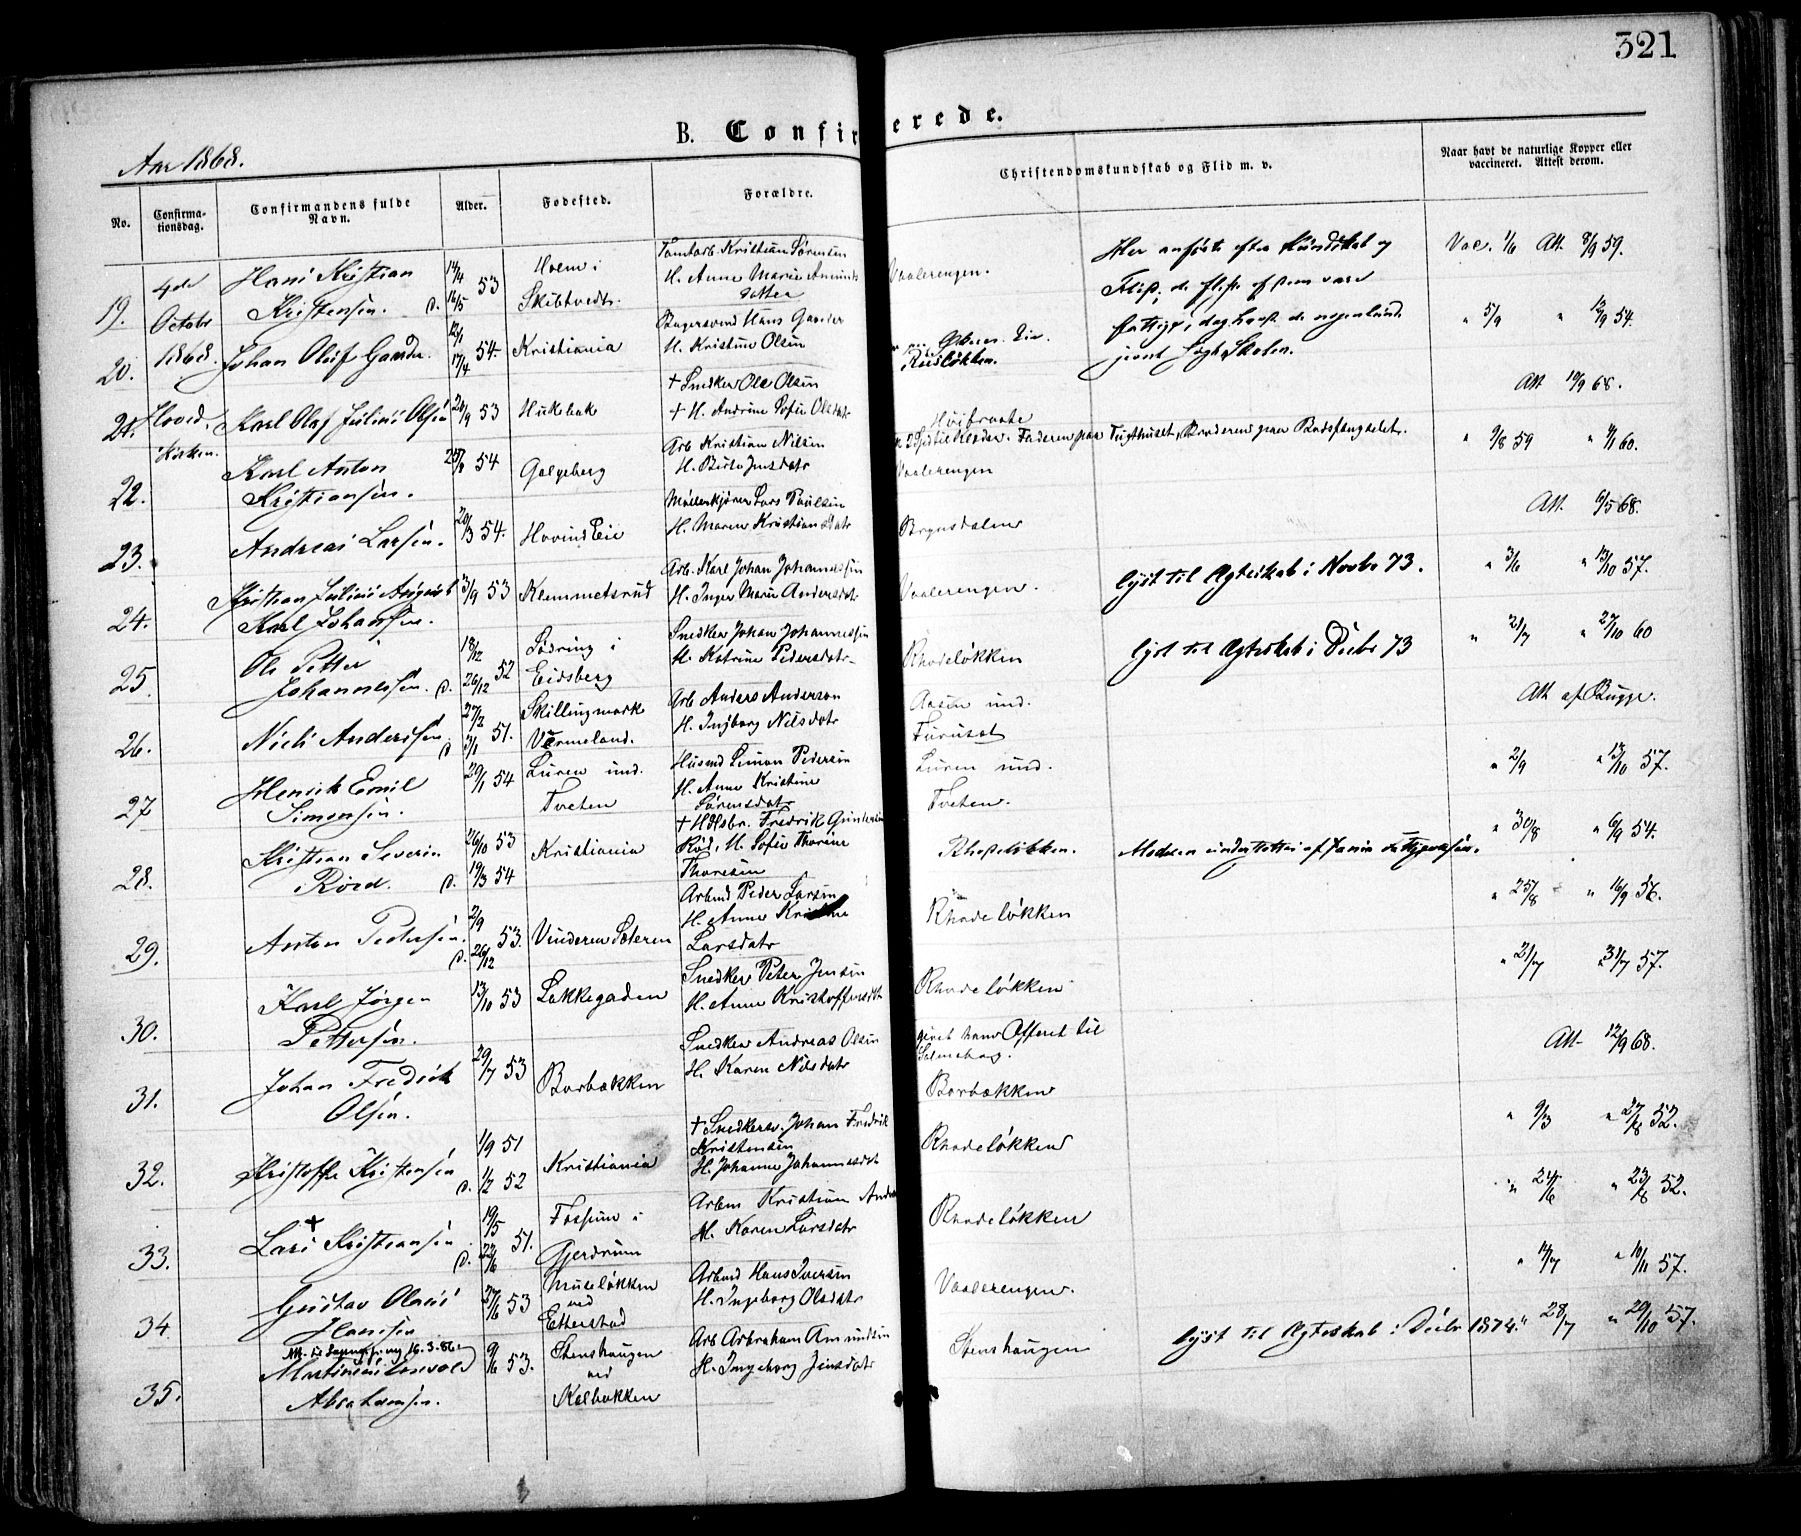 321
B. Confir erede.
Aar 1868.
No.
Confirma-
tionsdag.
Confirmandens fulde
Navn.
Alder.
Fødested.
Forældre.
Christendomskundskab og Flid m. v.
Naar havt de naturlige Kopper eller
vaccineret. Attest derom.
19.
4de
October
1868
Hoved
Kirken.
Hans Kristian
Kristensen. d.
14/4 53
16/5
Skibtvedt.
Tomtarb. Kristian Sørensen
H. Anne Marie Amunds
datter
Vaalerengen.
Vac. 1/6 Att. 8/9 59.
20.
Johan Oluf Gander.
17/4 54.
Kristiania
Bagersvend Hans Gander
H. Kristine Olsen
Rodeløkken.
" 5/9 " 12/9 54.
21.
Karl Olaf Julius Olsen
53
Hukebak
+ Snedker Ole Olsen
+ H. Andrine Sofie Olsdatr
Høibraate
Att 10/9 68.
Faderen paa Tugthuset, Broderen paa Bodsfængslet.
22.
Karl Anton
Kristiansen.
54
Galgeberg
Arb. Kristian Nilsen
H. Berte Jensdatr
Vaalerengen
" 9/8 59 " 60.
23.
Andreas Larsen.
20/3 54.
Hovind Eie
Møllekjører Lars Paulsen
H. Maren Kristiansdatr
Brynsdalen
Att. 6/5 68.
24.
Kristian Julius August
Karl Johansen.
3/9 53
Klemmetsrud
Arb. Karl Johan Johannessen
H. Inger Marie Andersdatr
Vaalerengen.
lyst til Ægteskab i Novbr 73.
" 3/6 " 13/10 57.
25.
Ole Petter
Johannessen. d.
18/12 52
26/12
Eidsberg
Snedker Johan Johannessen
H. Katrine Pedersdatr
Rhodeløkken
lyst til Ægteskab i Decbr 73
" 21/7 " 27/10 60
26.
Niels Andersen d
27/2 51.
3/1
Skillingmark
Vermeland.
Arb Anders Anderson
H. Ingborg Nilsdatr
Aasen und.
Furuset
Att af Bugge.
27
Henrik Emil
Simonsen.
29/1 54
Luren und.
Tveten
Husmd Simon Pedersen
H. Anne Kristine
Sørensdatr
Luren und.
Tveten.
" 2/9 " 13/10 57.
28.
Kristian Severin
Röed. d.
26/10 53
19/3 54
Kristiania
+ Hdlsbr. Fredrik Gundersen
Röd, H. Sofie Thorine
Thoresen
Rhodeløkken.
" 30/8 " 6/9 54.
29.
Anton Pedersen. d.
2/9 53.
26/12
Vinderen Sæteren
Arbmd Peder Larsen
H. Anne Kristine
Larsdatr
Rhodeløkken
" 25/8 " 16/9 56.
30.
Karl Jørgen
Pettersen.
13/10 53
Lakkegaden
Snedker Peter Jensen
H. Anne Kristoffersdatr
Rhodeløkken
" 21/7 " 31/7 57.
31.
Johan Fredrik
Olsen.
29/7 53
Borbækken
Snedker Andreas Olsen
H. Karen Nilsdatr
givet ham Offeret til
Salmebog.
Borbækken
Att- 12/9 68.
32.
Kristoffer Kristensen d.
1/9 51
1/2 52
Kristiania
+ Snedkersv. Johan Fredrik
Kristensen
H. Johanne Johannesdat
Rhodeløkken
" 9/3 " 27/8 52.
33.
Lars + Kristiansen d.
19/5 51.
22/6
Fossum i
Gjerdrum
Arbm Kristian Anders
H. Karen Larsdatr
Rhodeløkken
" 24/6 " 23/8 52.
34
Gustav Olaus
Hansen
27/6 53
Museløkken
ved
Etterstad
Arbmd Hans Iversen
H. Ingeborg Olsdatr
Vaalerengen.
" 17/7 " 10/11 57.
35.
16.3.86
Martinius Enevold
Abrahamsen.
9/6 53.
Stenshaugen
ved
Kalbakken
Arb Arbraham Amundsen
H. Ingeborg Jensdatr
Stenshaugen
lyst til Ægteskab i Decbr 1874.
" 28/7 " 29/10 57.